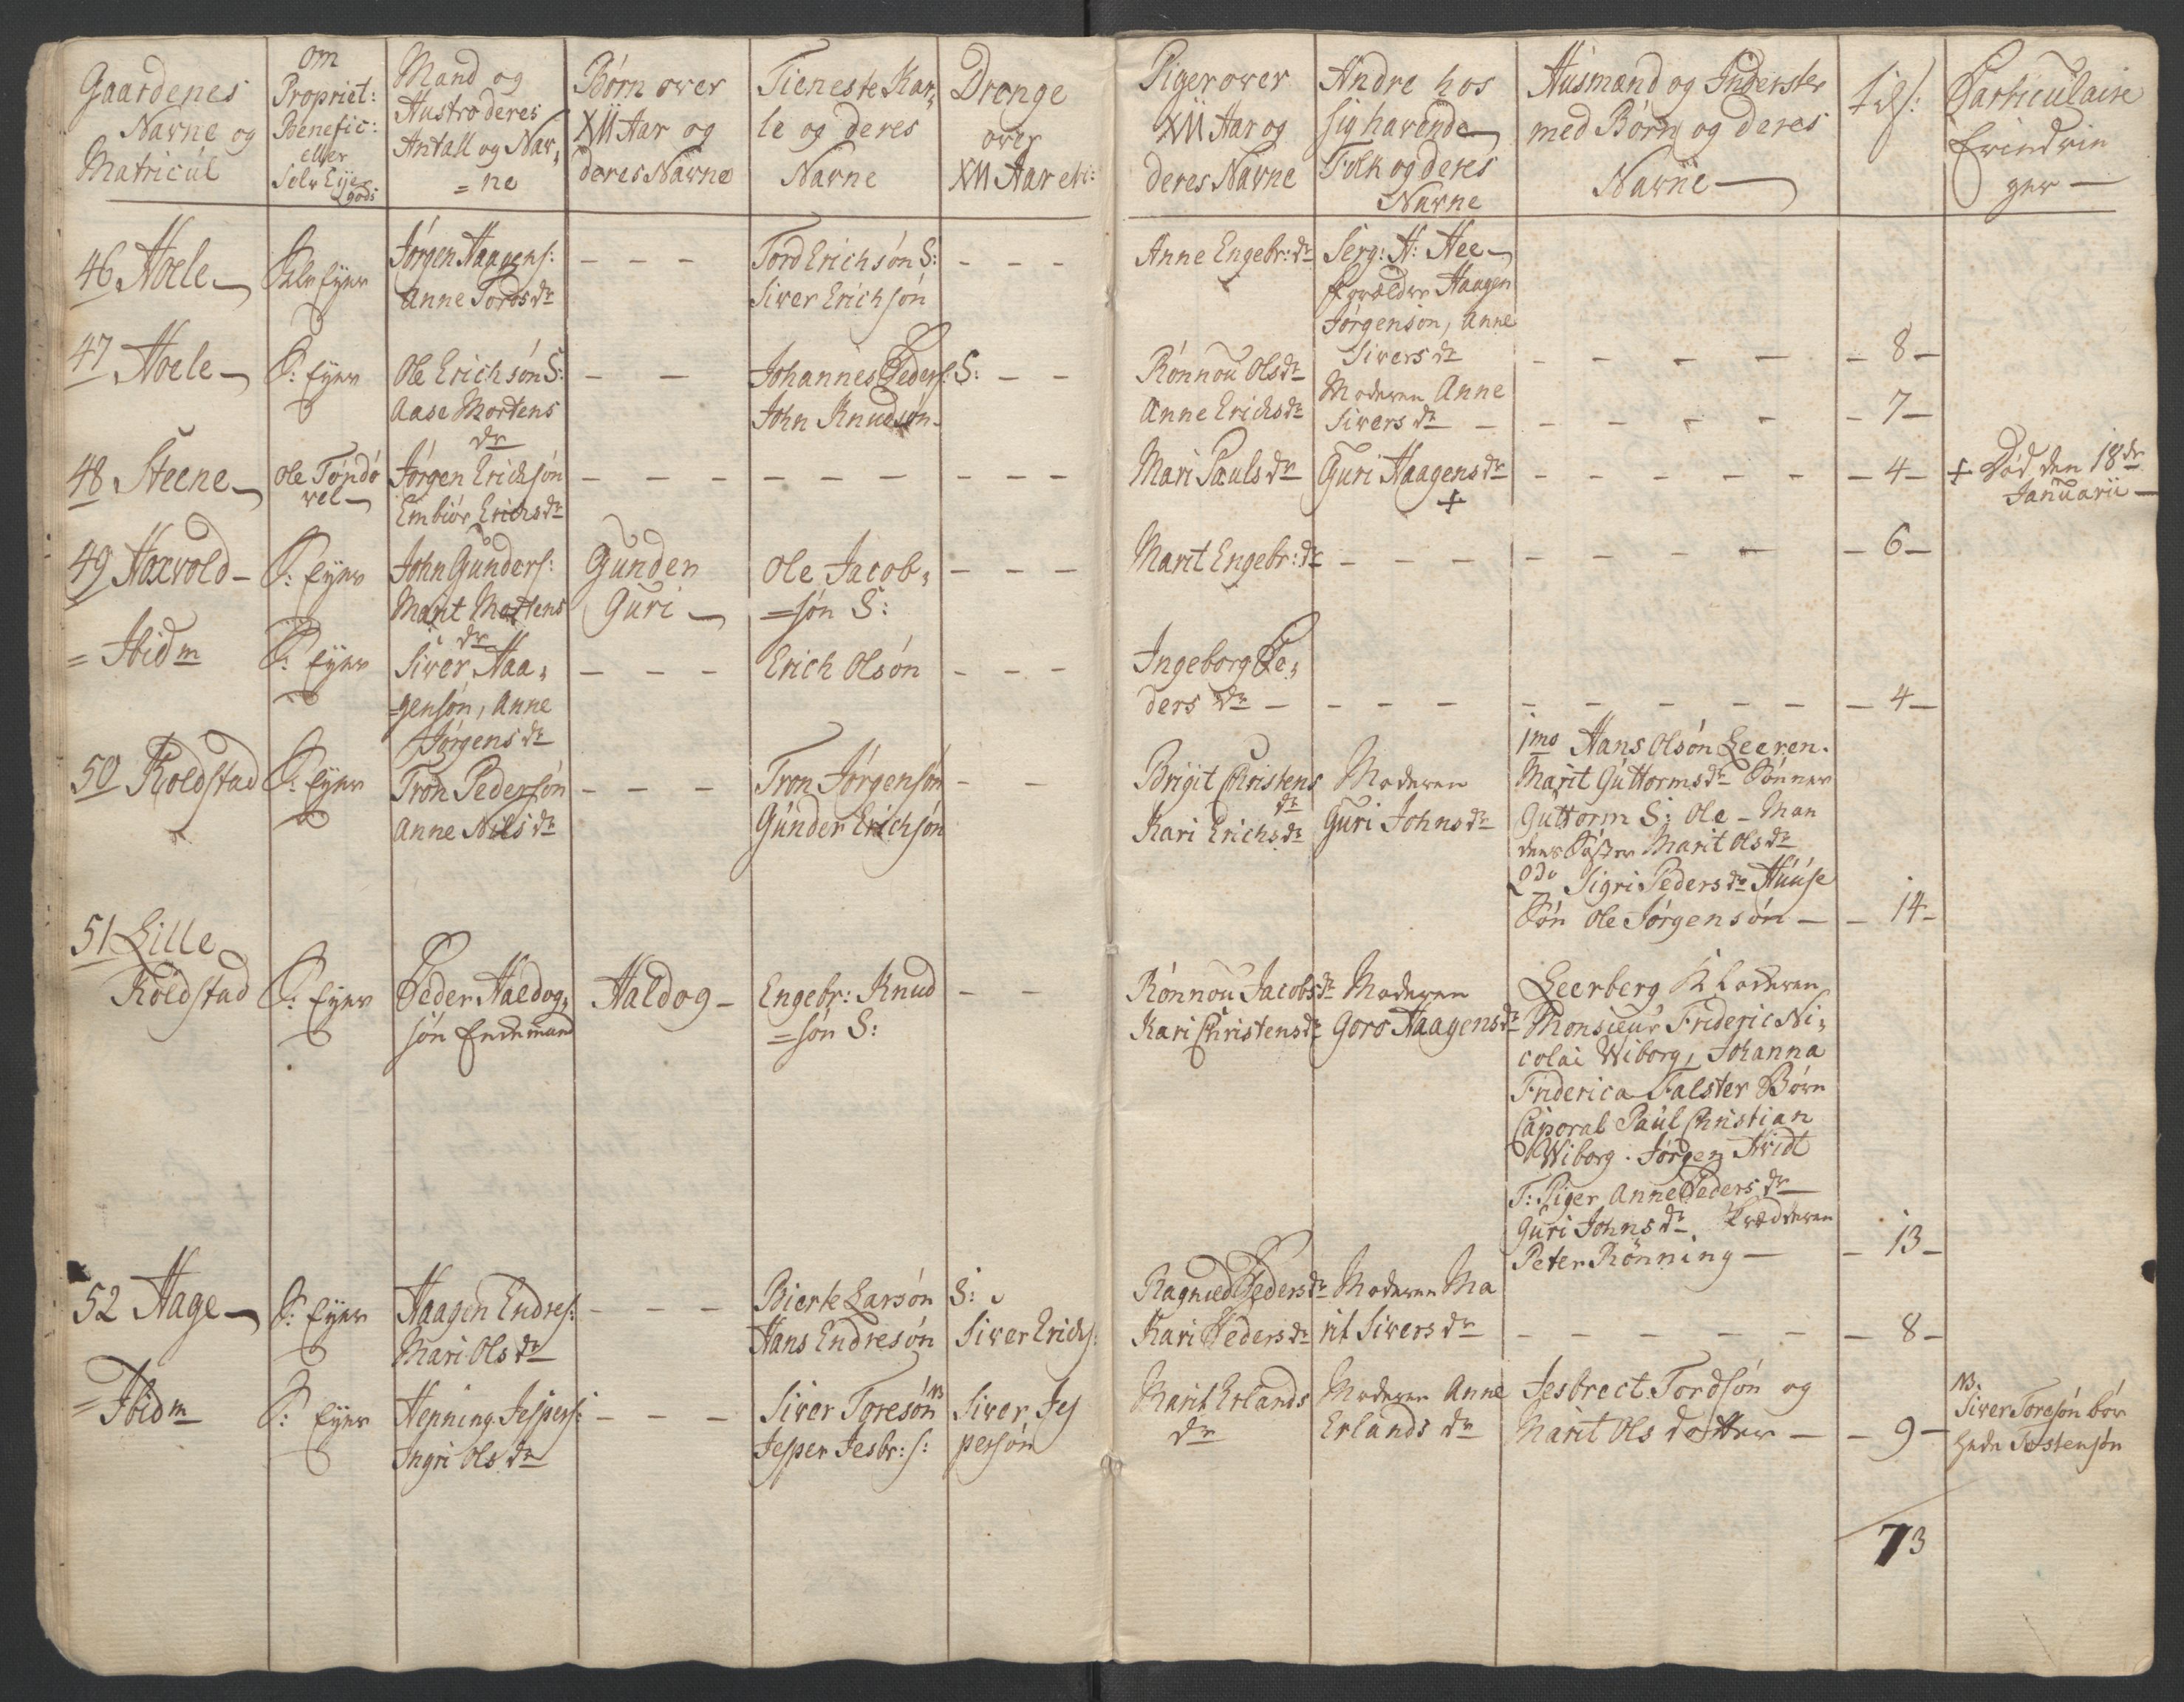 Gaardenes
Navne og
Matricul
om
Propriet:
Benefic:
eller
Selv Eyer
gods:
Mand og
Hustro deres
Antall og Nav,
=ne
Børn over
XII Aar og
deres Navne
Tieneste Kar,
le og deres
Navne
Drenge
over
XII Aar etc:
Piger over
XII Aar og
deres Navne
Andre hos
sig havende
Folk og deres
Navne
Husmænd og Inderster
med Børn og deres
Navne
Particulaire
Erindrin
ger
46 Hoele
Selv Eyer
Jørgen Haagens:
Anne Tordsdr
- - -
Tord Erichsøn S:
Siver Erichsøn
- - -
Anne Engebr:dr
Serg: H: Hee
Forældre Haagen
Jørgensøn, Anne
Siversdr
- - - - - 8 -
47 Hoele
S: Eyer
Ole Erichsøn S:
Aase Mortens
dr
- -
Johannes Peders: S:
John Knudsøn
- -
Rønnou Olsdr
Anne Erichsdr
Moderen Anne
Siversdr
- - - - - - 7 -
48 Steene
Ole Tøndø
vel
Jørgen Erichsøn
Embiør Erichsdr
- - - - - - - - -
Mari Paulsdr
Guri Haagensdr
+
- - - - - - 4 -
+ Død den 18de
Januarii
49 Hoxvold
S: Eyer
John Gunders:
Marit Mortens
dr
Gunder
Guri
Ole Jacob,
=søn S:
- - -
Marit Engebr:dr
- - - - - - - - - 6 -
= Ibidm
S: Eyer
Siver Haa,
=gensøn, Anne
Jørgensdr
- - -
Erich Olsøn
- - -
Ingeborg Pe,
dersdr
- - - - - - - - - - - 4 -
50 Koldstad
S: Eyer
Tron Pedersøn
Anne Nilsdr
- - -
Tron Jørgensøn
Gunder Erichsøn
- -
Brigit Christens
dr
Kari Erichsdr
Moderen
Guri Johnsdr
1mo Hans Olsøn Leeren.
Marit Guttormsdr Sønner
Guttorm S: Ole - Man
dens Søster Marit Olsdr
2do Sigri Pedersdr Huuse
Søn Ole Jørgensøn - - 14 -
51 Lille
Koldstad
S: Eyer
Peder Haldog,
søn Enkemand
Haldog -
Engebr: Knud
=søn S:
- -
Rønnou Jacobsdr
Kari Christensdr
Moderen
Goro Haagensdr
Leerberg
Monsieur Frideric Ni,
colai Wiborg, Johanna
Friderica Falster Børn
Caporal Paul Christian
Wiborg. Jørgen Hvidt
T: Piger Anne Pedersdr
Guri Johnsdr
Peter Rønning - - 13 -
52 Hage
S: Eyer
Haagen Endres:
Mari Olsdr
- - -
Bierte Larsøn S:
Hans Endresøn
Siver Erichs:
Ragnied Pedersdr
Kari Pedersdr
Moderen Ma
rit Siversdr
- - - - - - - 8 -
= Ibidm
S: Eyer
Henning Jespers:
Ingri Olsdr
- - -
Siver Toresøn NB
Jesper Jesbr: s:
Siver Jes
persøn
Marit Erlands
dr
Moderen Anne
Erlandsdr
Jesbrect Tordsøn og
Marit Ols dotter - - 9 -
NB.
Siver Toresøn bør
hede Tostensøn
73